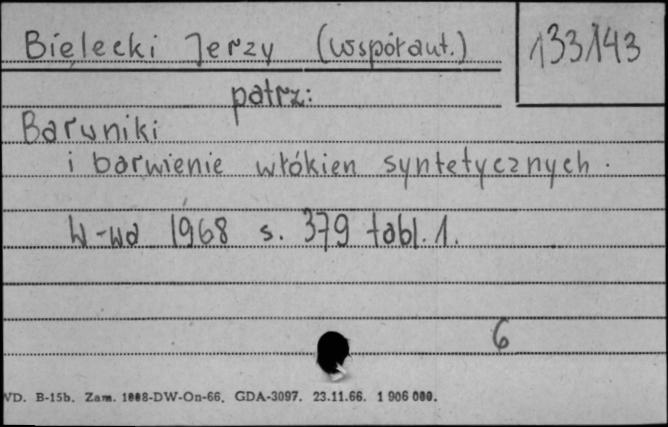 Bielecki Jerzy (współaut.)
133143
patrz:
Barwniki
i barwienie włókien syntetycznych.
W-wa 1968 s. 379 tabl. 1.
6
WD. B-15b. Zam. 1008-DW-On-66. GDA-3097. 23.11.66. 1 906 000.